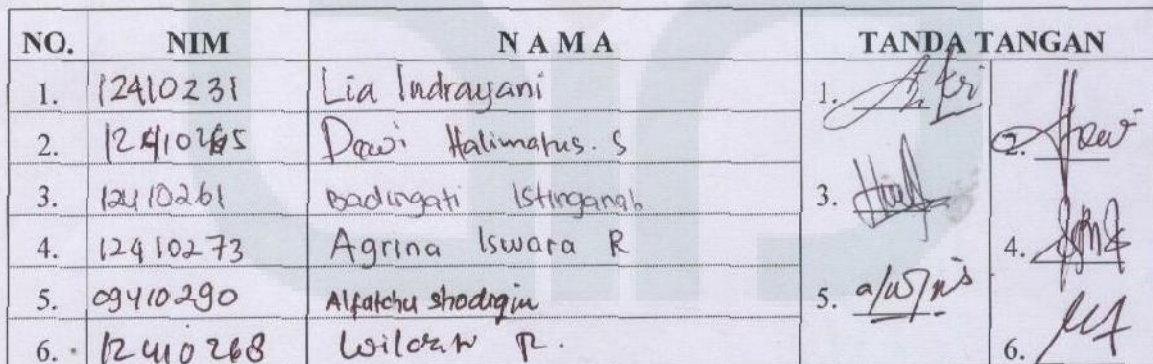 NO. NIM N A M A TANDA TANGAN
1. 12410231 Lia Indrayani 1.
2. Dewi Halimatus. S 2.
3. 12410261 Badingati Istinganah 3.
4. 12410273 Agrina Iswara R 4.
5. 09410290 Alfatchu shodiqin 5.
6. 12410268 R. 6.